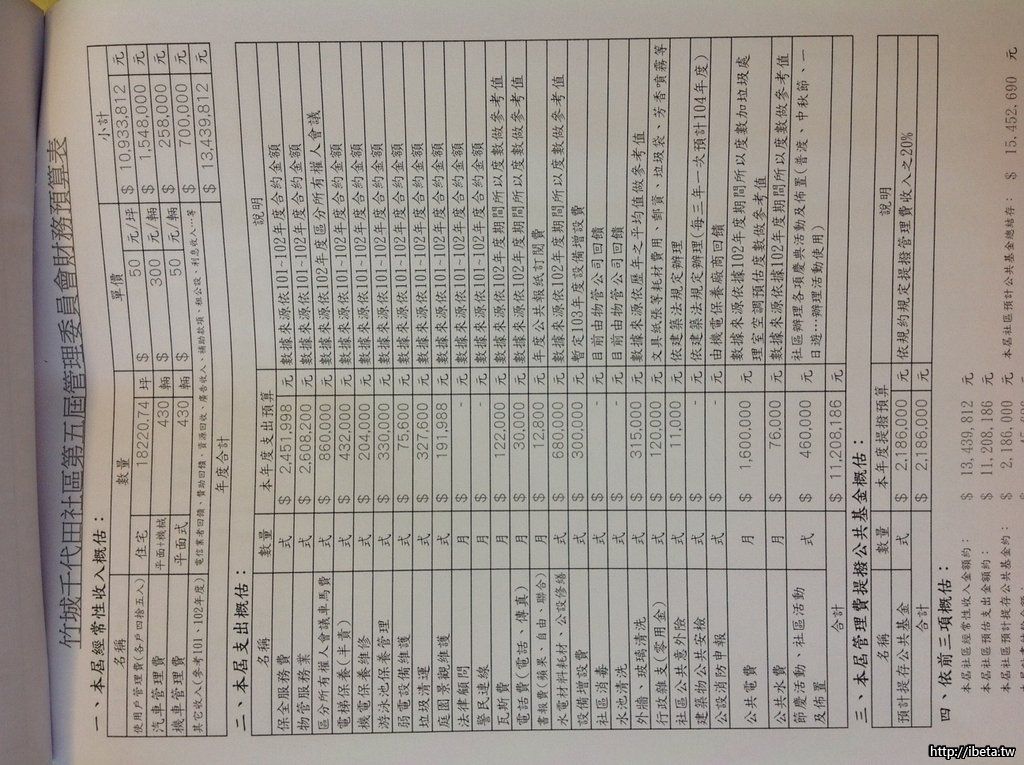 竹城千代田社區第五屆管理委員會財務預算表
一、本屆經常性收入概估：
名稱 數量 單價 小計
使用戶管理費(各戶四捨五入) 住宅 18220.74 坪 $ 50 元/坪 $ 10,933,812 元
汽車管理費 平面+機械 430 輛 $ 300 元/輛 $ 1,548,000 元
機車管理費 平面式 430 輛 $ 50 元/輛 $ 258,000 元
其它收入(參考101、102年度) 電信業者回饋、贊助回饋、資源回收、廣告收入、補助款項、租公設、利息收入…等 $ 700,000 元
年度合計 $ 13,439,812 元
二、本屆支出概估：
名稱 數量 本年度支出預算 說明
保全服務費 式 $ 2,451,998 元 數據來源依101~102年度合約金額
物管服務業 式 $ 2,608,200 元 數據來源依101~102年度合約金額
區分所有權人會議車馬費 式 $ 860,000 元 數據來源依102年度區分所有權人會議
電梯保養(半責) 式 $ 432,000 元 數據來源依101~102年度合約金額
機電保養維修 式 $ 204,000 元 數據來源依101~102年度合約金額
游泳池保管理 式 $ 330,000 元 數據來源依101~102年度合約金額
弱電設備維護 式 $ 75,600 元 數據來源依101~102年度合約金額
垃圾清運 式 $ 327,600 元 數據來源依101~102年度合約金額
庭園景觀維護 式 $ 191,988 元 數據來源依101~102年度合約金額
法律顧問 月 $ - 元 數據來源依101~102年度合約金額
警民連線 月 $ - 元 數據來源依101~102年度合約金額
瓦斯費 月 $ 122,000 元 數據來源依102年度期間所以度數做參考值
電話費(電話、傳真) 月 $ 30,000 元 數據來源依102年度期間所以度數做參考值
書報費(蘋果、自由、聯合) 月 $ 12,800 元 年度公共報紙訂閱費
水電材料耗材、公設修繕 式 $ 680,000 元 數據來源依102年度期間所以度數做參考值
設備增設費 式 $ 300,000 元 暫定103年度設備增設費
社區消毒 式 $ - 元 目前由物管公司回饋
水池清洗 式 $ - 元 目前由物管公司回饋
外牆、玻璃清洗 式 $ 315,000 元 數據來源依歷年之平均值做參考值
行政雜支(零用金) 式 $ 120,000 元 文具紙張等耗材費用、郵資、垃圾袋、芳香噴霧等
社區公共意外險 式 $ 11,000 元 依建築法規定辦理
建築物公共安檢 式 $ - 元 依建築法規定辦理(每三年一次預計104年度)
公設消防申報 式 $ - 元 由機電保養廠商回饋
公共電費 月 $ 1,600,000 元 數據來源依據102年度期間所以度數加垃圾處
理室空調預估度數做參考值
公共水費 月 $ 76,000 元 數據來源依據102年度期間所以度數做參考值
節慶活動、社區活動
及佈置 式 $ 460,000 元 社區辦理各項慶典活動及佈置(普渡、中秋節、一
日遊…辦理活動使用)
合計 $ 11,208,186 元
三、本屆管理費提撥公共基金概估：
名稱 數量 本年度提撥預算 說明
預計提存公共基金 式 $ 2,186,000 元 依規約規定提撥管理費收入之20%
合計 $ 2,186,000 元
四、依前三項概估：
本屆社區經常性收入金額約： $ 13,439,812 元
本屆社區預估支出金額約： $ 11,208,186 元
本屆社區預計提存公共基金約： $ 2,186,000 元 本屆社區預計公共基金總結存： $ 15,452,690 元
http://ibeta.tw